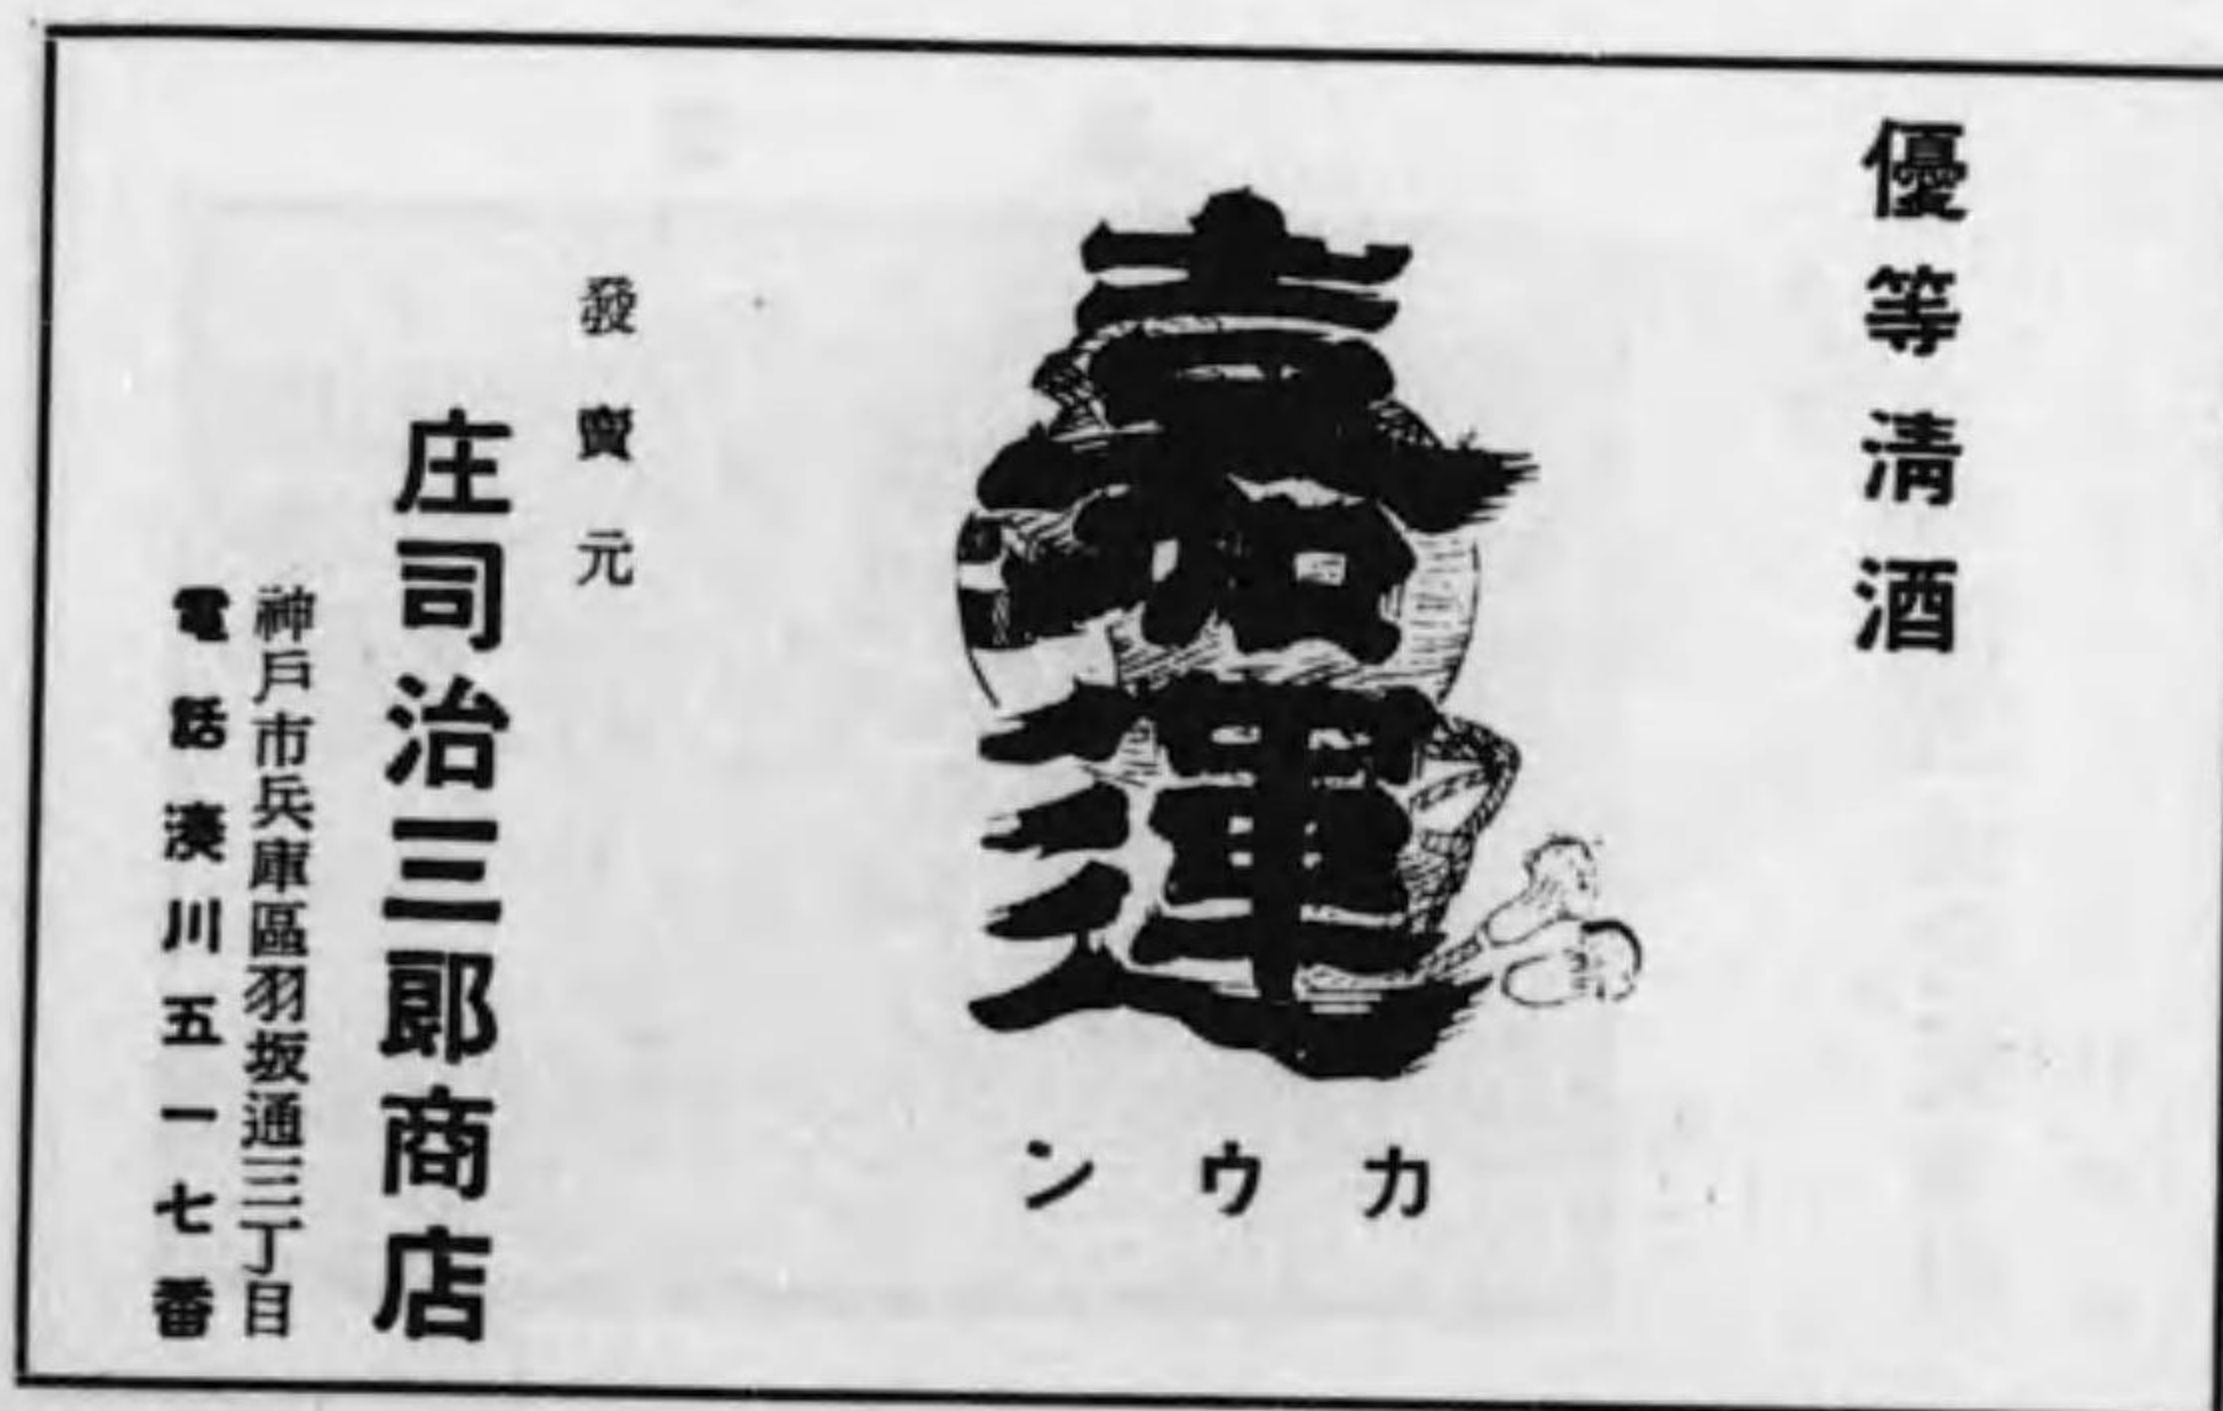 優等淸酒
嘉運
カウン
發賣元
庄司治三郞商店
神戶市兵庫區羽坂通三丁目
電話湊川五一七番